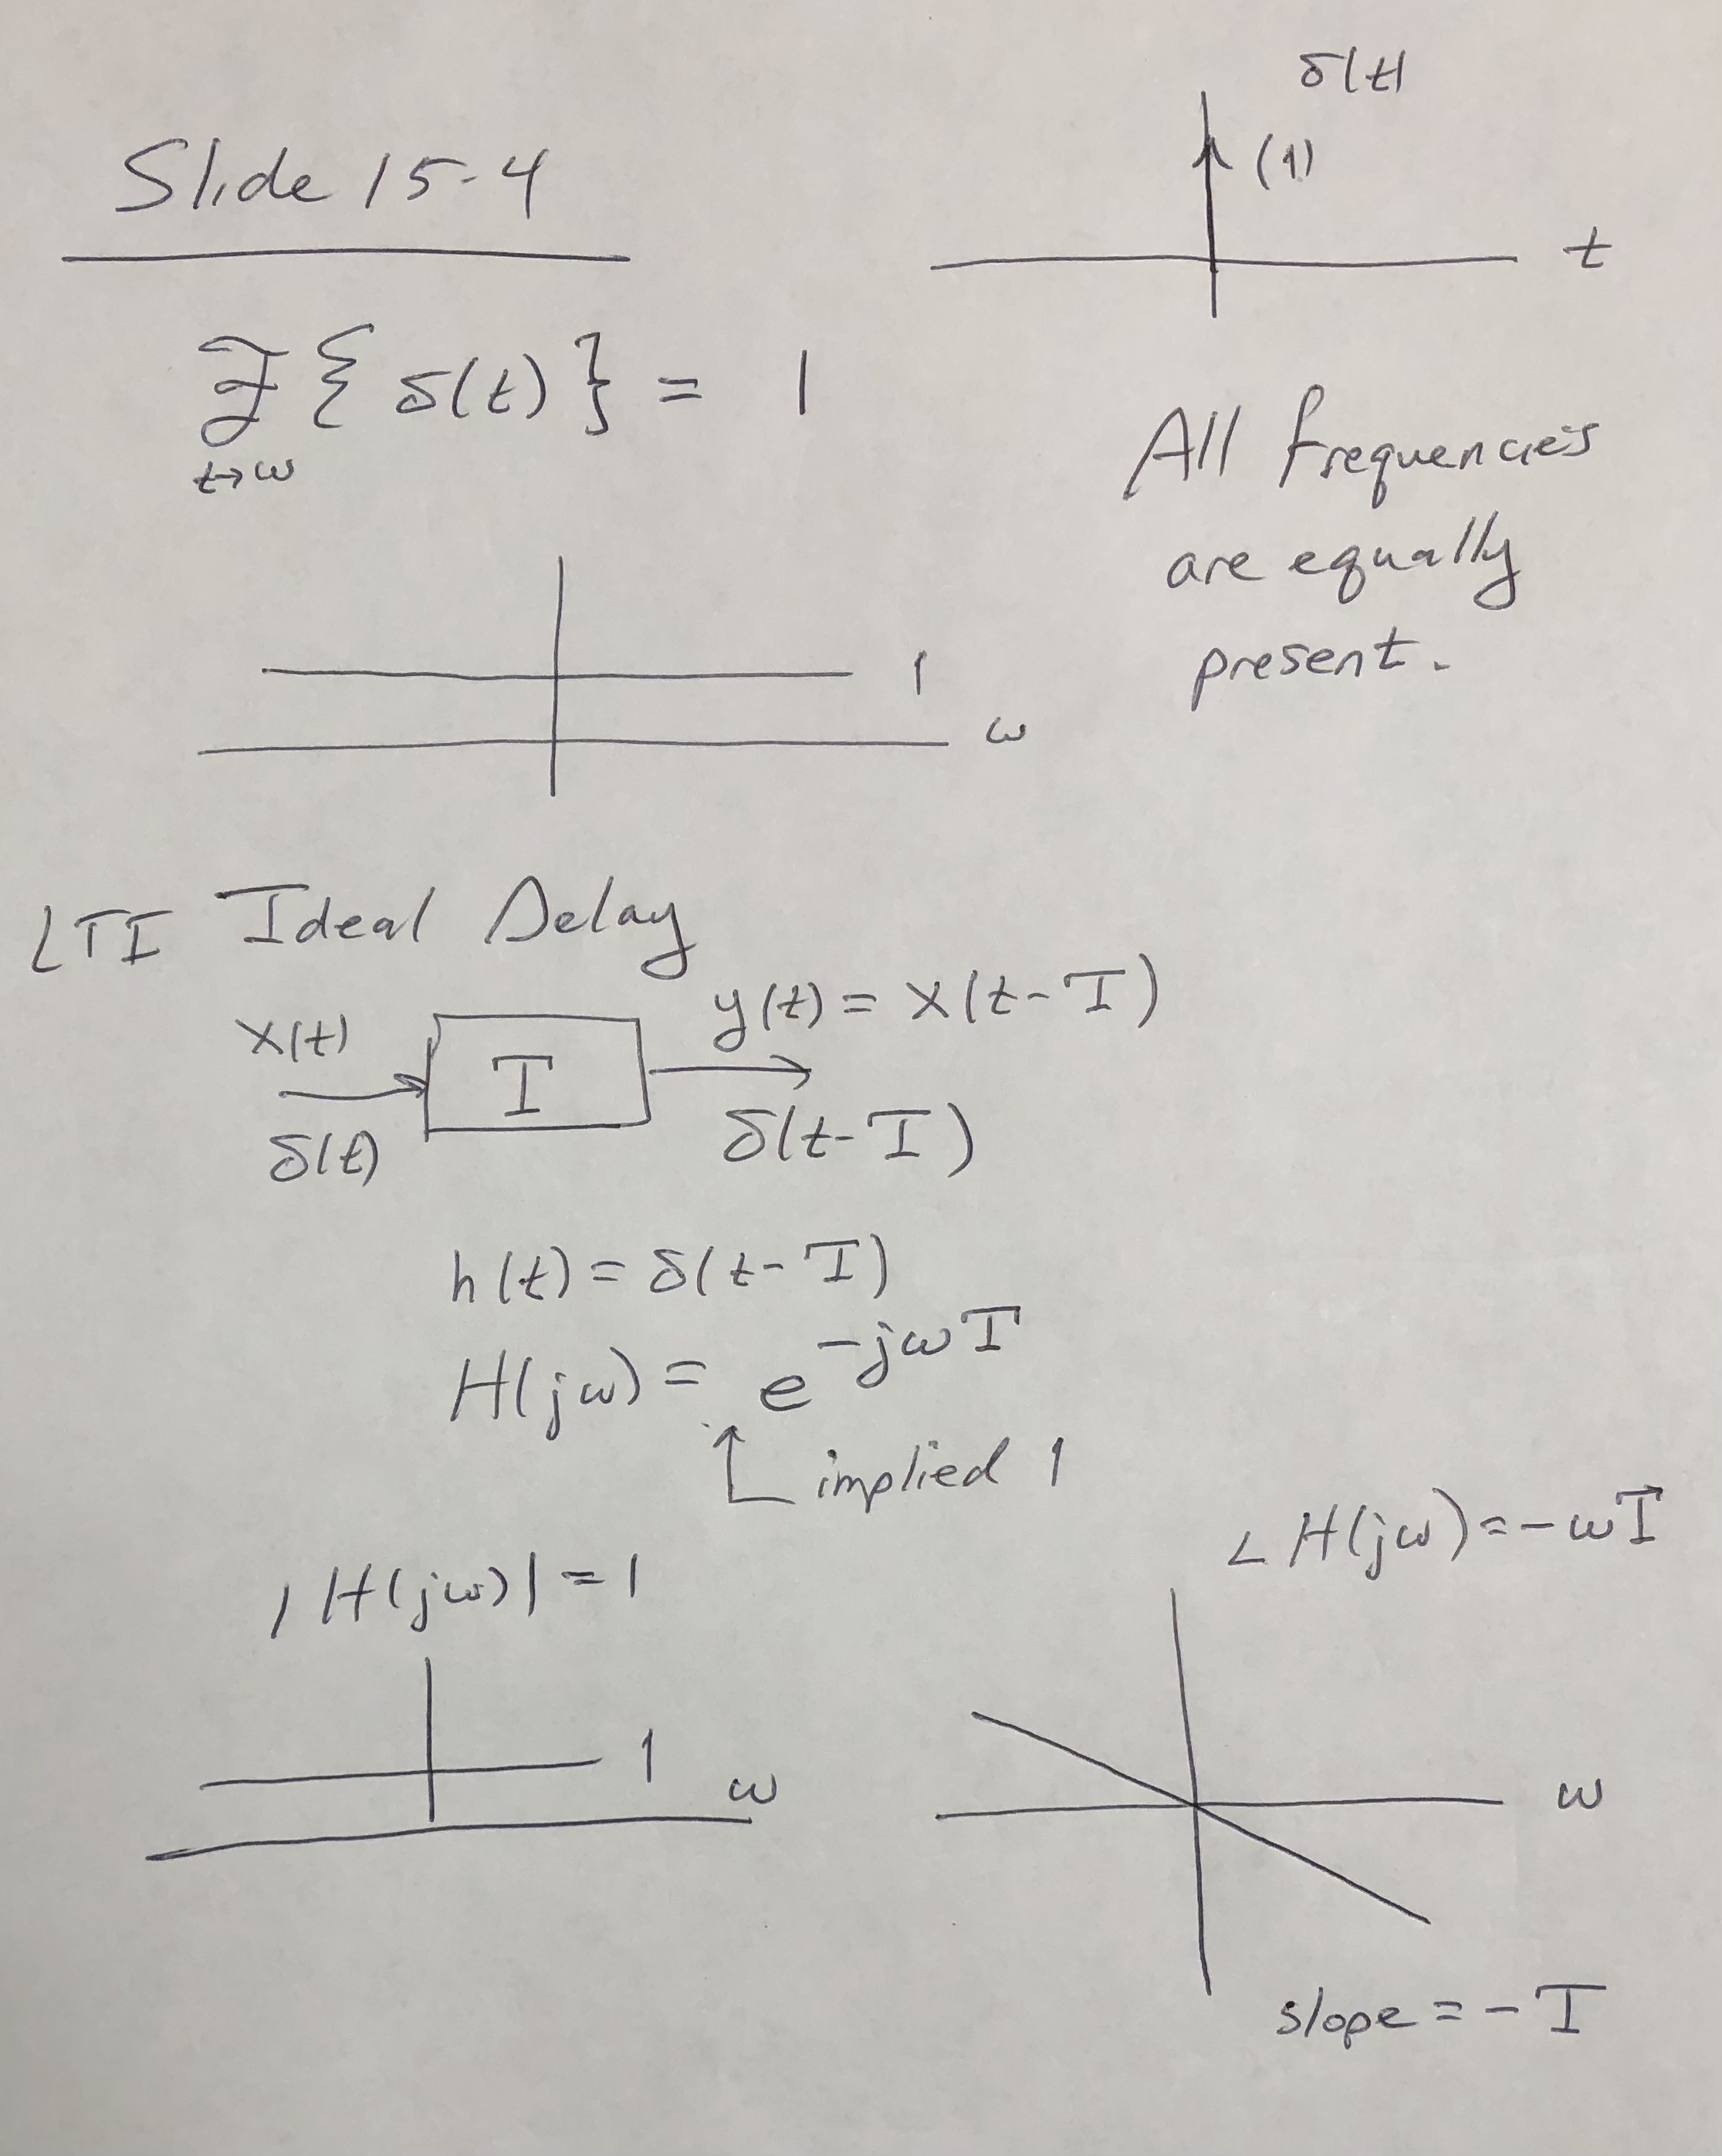 Slide 15-4
δ(t)
(1)
t
ℱ{δ(t)} = 1
t→ω
All frequencies
are equally
present.
1
ω
LTI Ideal Delay
x(t)
T
y(t) = x(t-T)
δ(t)
δ(t-T)
h(t) = δ(t-T)
H(jω) = e^{-jωT}
implied 1
|H(jω)| = 1
∠H(jω) = -ωT
1
ω
ω
slope = -T